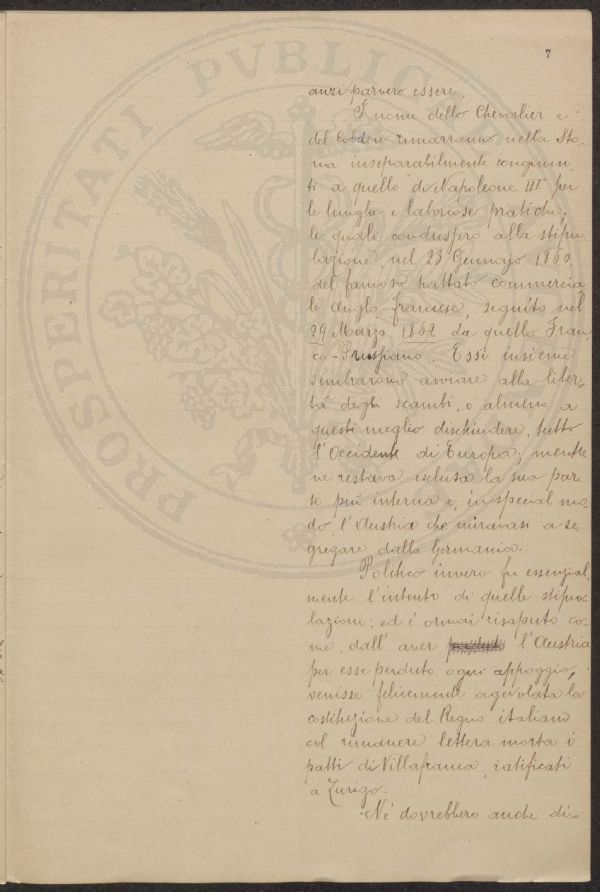 7
PROSPERITATI PVBLICAE
anzi parvero essere.
I nomi dello Chevalier e
del Cobden rimarranno nella Sto-
ria inseparabilmente congiun-
ti a quello di Napoleone III per
le lunghe e laboriose pratiche,
le quali condussero alla stipu-
lazione nel 23 Gennajo 1860
del famoso trattato commercia-
le anglo-francese, seguito nel
29 Marzo 1862 da quello Fran-
co-Prussiano. Essi insieme
sembrarono avviare alla liber-
tà degli scambi, o almeno a
questi meglio dischiudere, tutto
l'Occidente di Europa; mentre
ne restava esclusa la sua par-
te più interna e, in special mo-
do, l'Austria che miravasi a se-
gregare dalla Germania.
Politico invero fu essenzial-
mente l'intento di quelle stipu-
lazioni; ed è ormai risaputo co-
me, dall'aver l'Austria
per esse perduto ogni appoggio,
venisse felicemente agevolata la
costituzione del Regno italiano
col rimanere lettera morta i
patti di Villafranca, ratificati
a Zurigo.
Nè dovrebbero anche di-